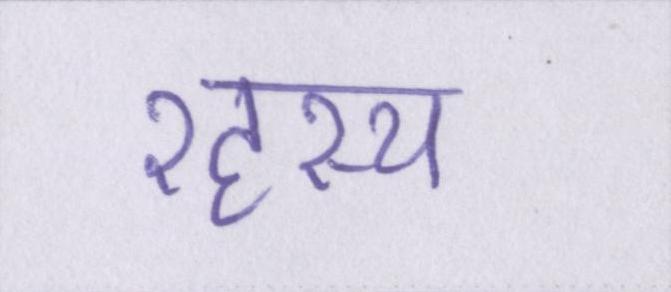 रहस्य